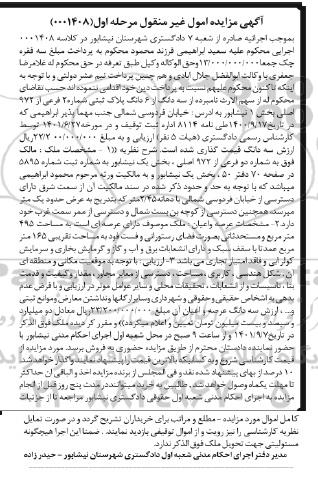 آگهی مزایده اموال غیر منقول مرحله اول(۰۰۰۱۴۰۸)
بموجب اجرائیه صادره از شعبه ۷ دادگستری شهرستان نیشابور در کلاسه ۰۰۰۱۴۰۸
اجرایی محکوم علیه سعید ابراهیمی فرزند محمود محکوم به پرداخت مبلغ سه فقره
چک جمعا ۱۳/۰۰۰/۰۰۰/۰۰۰ وحق الوکاله وکیل طبق تعرفه در حق محکوم له غلامرضا
جعفری با وکالت ابوالفضل جلال آبادی و هم چنین پرداخت نیم عشر دولتی و با توجه به
اینکه تاکنون محکوم علیهم نسبت به پرداخت دین خود اقدامی ننموده اند حسب تقاضای
محکوم له از سهم الارث نامبرده از سه دانگ از ۶ دانگ پلاک ثبتی شماره ۲ فرعی از ۹۷۲
اصلی بخش ۱ نیشابور به آدرس : خیابان فردوسی شمالی جنب مهما پذیر ابراهیمی که
در تاریخ ۱۴۰۰/۹/۱۷ طی نامه ۸۱۱۴ اداره ثبت توقیف و در مورخه ۱۴۰۱/۶/۲۷ توسط
کارشناس رسمی دادگستری (هیات ۵ نفر) ارزیابی و به مبلغ ۲۳/۲۰۰/۰۰۰/۰۰۰ ریال
ارزش سه دانگ قیمت گذاری شده است. شرح نظریه ((۱ - مشخصات ملک : مالک
فوق به شماره دو فرعی از ۹۷۲ اصلی ، بخش یک نیشابور به شماره ثبت شماره ۵۸۹۵
در صفحه ۷۰ دفتر ۵۰ ، بخش یک نیشابور و به مالکیت ورثه مرحوم محمود ابراهیمی
میباشد که با توجه به حد و حدود ذکر شده در سند مالکیت آن از سمت شرق دارای
دسترسی از خیابان فردوسی شمالی با دهانه ۳/۴۵ متر که بتدریج به عرض حدود یک متر
میرسد، همچنین دسترسی از کوچه بن بست شمال و دسترسی از ممر سمت غرب خود
دارد ۲- مشخصات عرصه واعیان : ملک موصوف دارای عرصه ای است به مساحت ۴۹۵
متر مربع ومستحدثاتی بصورت فضای رستورانی و فست فود به مساحت تقریبی ۱۶۵ متر
مربع عمدتا با سقف سبک و دارای انشعابات برق و آب و گاز و گرمایش بخاری و سرمایش
کولر آبی و فاقد امتیاز تجاری می باشد ۳- ارزیابی : با توجه به موقعیت مکانی و منطقه ای
آن ، شکل هندسی ، کاربری ، مساحت ، دسترسی از معابر مجاور ، مقدار و کیفیت و قدمت
بنا ، تاسیسات و انشعابات ، تحقیقات محلی و سایر عوامل موثر در ارزیابی و با فرض عدم
بدهی به اشخاص حقیقی و حقوقی و شهرداری وسایر ارگانها ونداشتن معارض وموانع ثبتی
و... ، ارزش سه دانگ عرصه و اعیان آن مبلغ ۲۳/۲۰۰/۰۰۰/۰۰۰ ریال معادل دو میلیارد
وسیصد وبیست میلیون تومان تعیین و اعلام میگردد)) و مقرر گردیده ملک فوق الذکر
در تاریخ ۱۴۰۱/۹/۷ و از ساعت ۹ صبح در محل شعبه اول اجرای احکام مدنی نیشابور با
حضور نماینده دادستان محترم از طریق مزایده حضوری به فروش برسد. مورد مزایده از
قیمت کارشناسی شروع و به کسانیکه بالاترین قیمت را پیشنهاد نمایند واگذار خواهد شد.
۱۰ درصد از بهای پیشنهاد شده نقد و فی المجلس از برنده مزایده اخذ و الباقی آن حداکثر
تا مهلت یکماه وصول خواهد شد. طالبین به خرید میتوانند در مدت پنج روز قبل از انجام
مزایده به اجرای احکام مدنی شعبه اول حقوقی دادگستری نیشابور مراجعه تا از جزئیات
کامل اموال مورد مزایده - مطلع و مراتب برای خریداران تشریح گردد و در صورت تمایل
نظریه کارشناسی را نیز رویت و از اموال توقیفی بازدید نمایند. . ضمنا این اجرا هیچگونه
مسئولیتی جهت تحویل ملک فوق الذکر ندارد.
مدیر دفتر اجرای احکام مدنی شعبه اول دادگستری شهرستان نیشابور - حیدر زاده